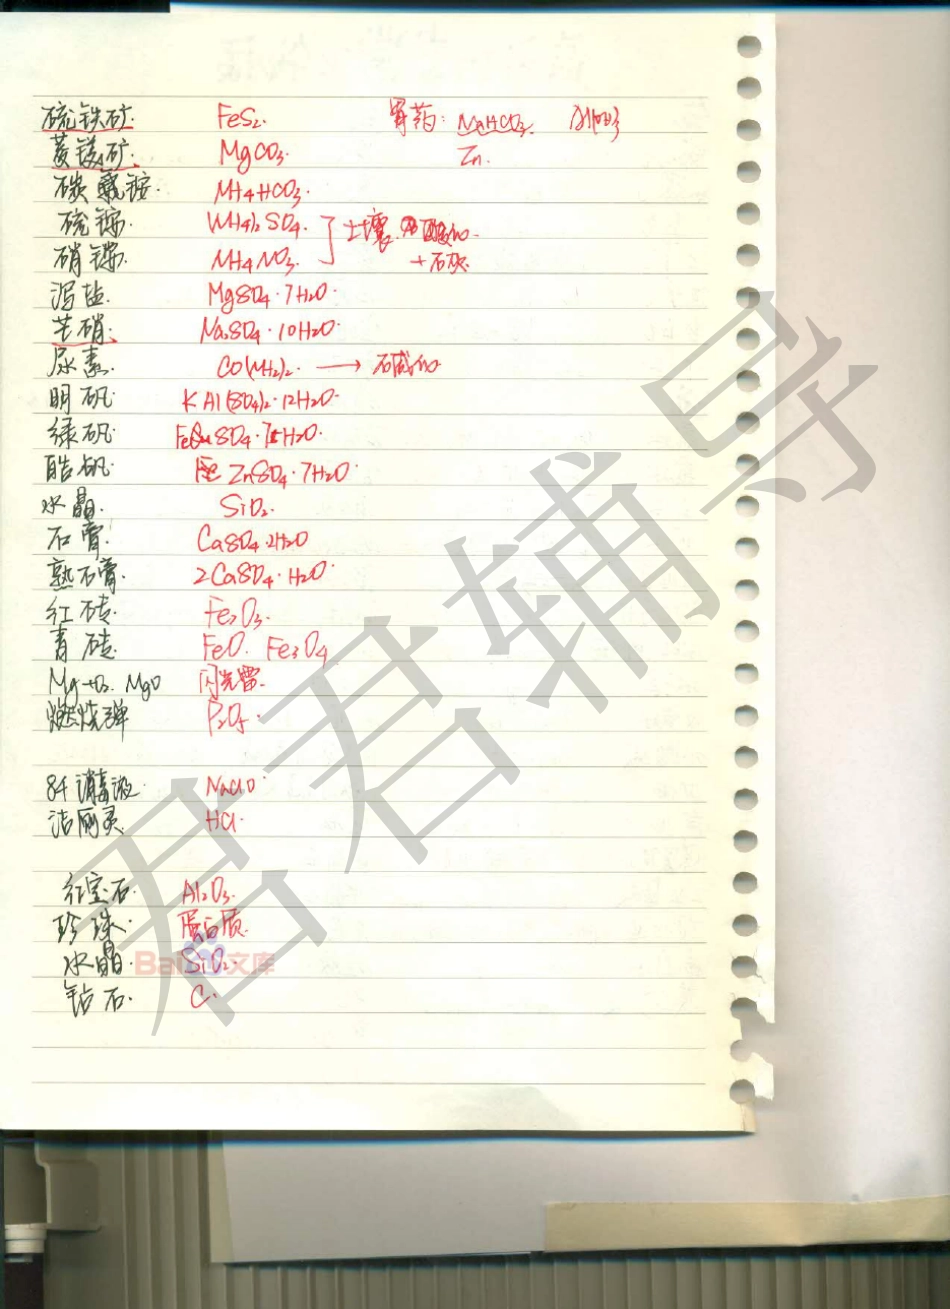 硫铁矿. FeS₂. 胃药: NaHCO₃. Al(OH)₃
菱镁矿. MgCO₃. Zn.
碳氢铵. NH₄HCO₃.
硫铵. (NH₄)₂SO₄. 土壤 酸的
硝铵. NH₄NO₃. +石灰
泻盐. MgSO₄·7H₂O.
芒硝. Na₂SO₄·10H₂O.
尿素. CO(NH₂)₂. → 碱的
明矾. KAl(SO₄)₂·12H₂O.
绿矾. FeSO₄·7H₂O.
皓矾. ZnSO₄·7H₂O.
水晶. SiO₂.
石膏. CaSO₄·2H₂O
熟石膏. 2CaSO₄·H₂O.
红砖. Fe₂O₃.
青砖. FeO. Fe₃O₄
Mg→O₂. MgO 闪光雷.
燃烧弹 P₂O₅.
84消毒液. NaClO
洁厕灵. HCl.
红宝石. Al₂O₃.
珍珠. 蛋白质.
水晶. SiO₂.
钻石. C.
君君辅导
Bai文库